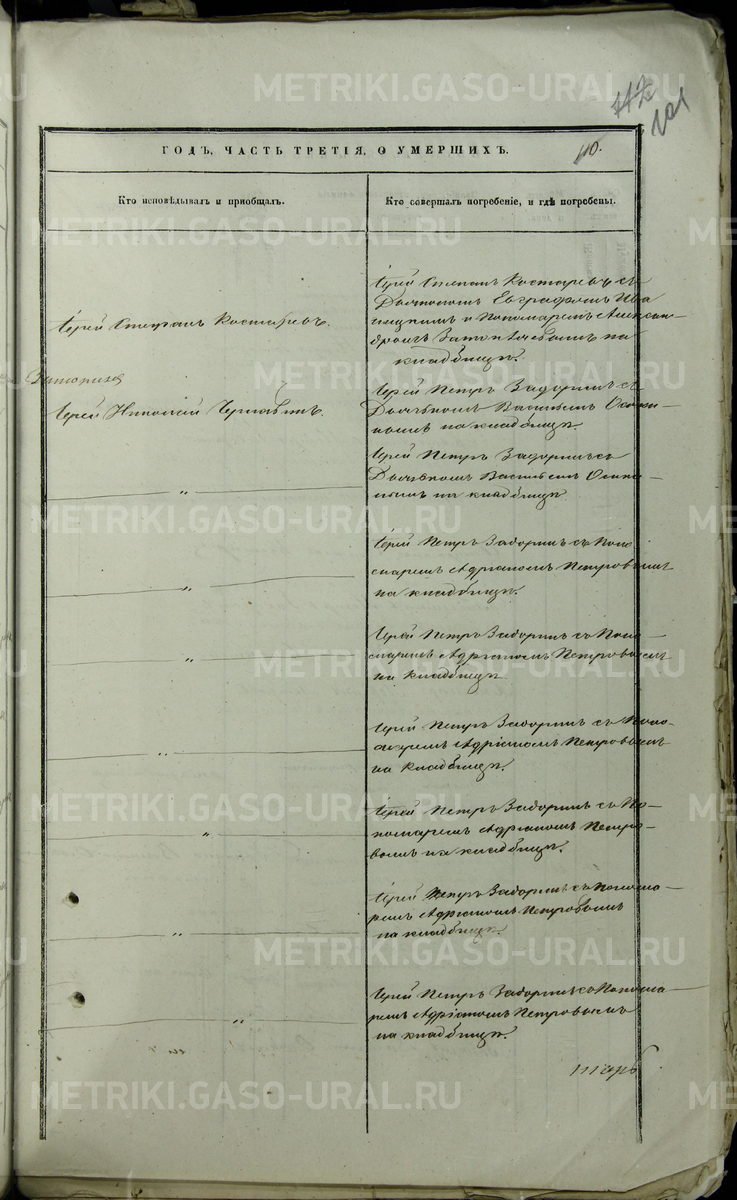 METRIKI.GASO-URAL.RU
101
ГОДЪ, ЧАСТЬ ТРЕТІЯ, О УМЕРШИХЪ.
110.
Кто исповѣдывалъ и пріобщалъ.
Кто совершалъ погребеніе, и гдѣ погребены.
Іерей Стефанъ Костаревъ.
Іерей Стефанъ Костаревъ съ
Дьячкомъ Евграфомъ
и Пономаремъ Алексан-
дромъ на
кладбищѣ.
Іерей Николай Чернавинъ.
Іерей Петръ Задоринъ съ
Дьячкомъ Васильемъ Осипо-
вымъ на кладбищѣ.
Іерей Петръ Задоринъ съ
Дьячкомъ Васильемъ Осипо-
вымъ на кладбищѣ
"
Іерей Петръ Задоринъ съ Поно
маремъ Адріаномъ Петровымъ
на кладбищѣ.
"
Іерей Петръ Задоринъ съ Поно
маремъ Адріаномъ Петровымъ
на кладбищѣ
"
Іерей Петръ Задоринъ съ Поно-
маремъ Адріаномъ Петровымъ
на кладбищѣ.
"
Іерей Петръ Задоринъ съ По-
номаремъ Адріаномъ Петро-
вымъ на кладбищѣ.
"
Іерей Петръ Задоринъ съ Понома
ремъ Адріаномъ Петровымъ
на кладбищѣ.
"
Іерей Петръ Задоринъ съ Понома
ремъ Адріаномъ Петровымъ
на кладбищѣ.
"